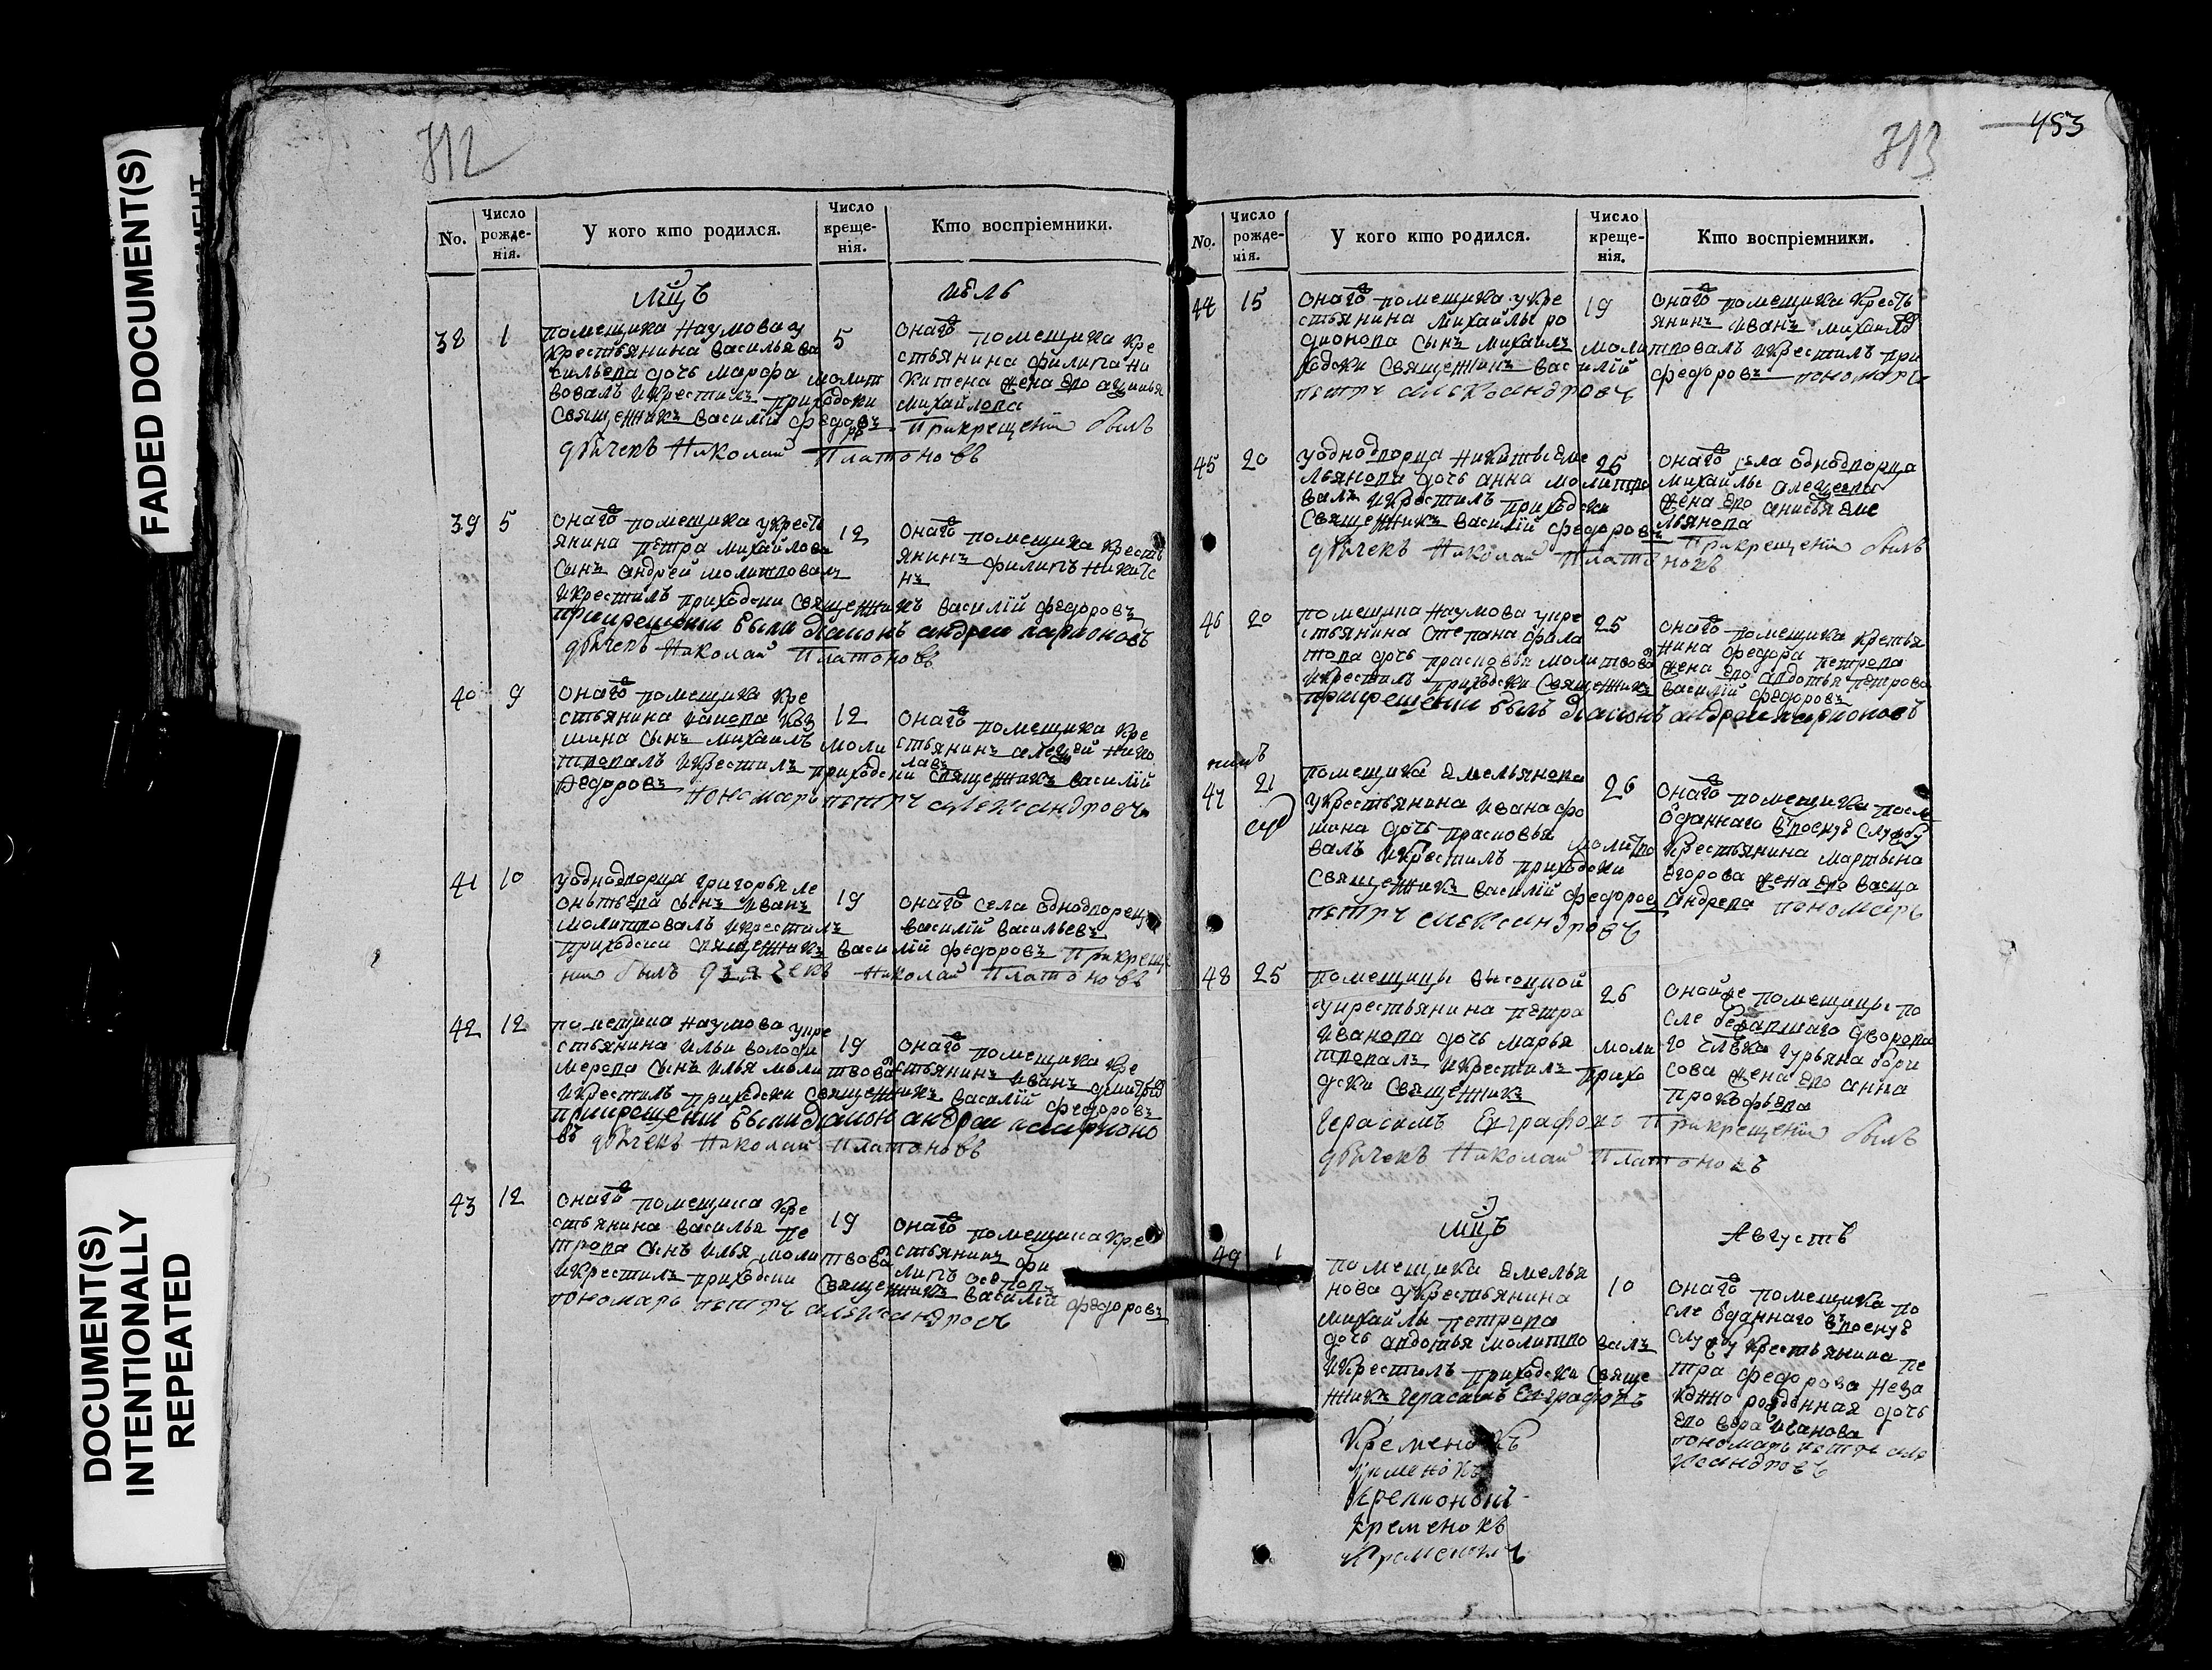 FADED DOCUMENT(S)
DOCUMENT(S)
INTENTIONALLY
REPEATED
712
No.
Число рожде-нія.
У кого кто родился.
Число креще-нія.
Кто воспріемники.
мцъ
38 1
помещика Наумова у
крестьянина василья ва
сильева дочь марфа молит
вовалъ икрестилъ приходски
священникъ василій федоровъ
5
онаго помещика кре
стьянина филипа ни
китена жена его
михайлова
прикрещении былъ
дьячекъ Николай Платоновъ
39 5
онаго помещика укресть
янина петра михайлова
сынъ андрей молитвовалъ
икрестилъ приходски священникъ василій федоровъ
прикрещении были дьяконъ андреи ларионовъ
дьячекъ Николай Платоновъ
12
онаго помещика кресть
янинъ филипъ никите
нъ
40 9
онаго помещика кре
стьянина
шина сынъ михаилъ моли
твовалъ икрестилъ приходски священникъ василій
федоровъ пономарь петръ александровъ
12
онаго помещика кре
стьянинъ алецей нико
лавъ
41 10
уоднодворца григорья ле
онтьева сынъ иванъ
молитвовалъ икрестилъ
приходски священникъ василій федоровъ прикреще
нию былъ дьячекъ Николай Платоновъ
19
онаго села однодворецъ
василій васильевъ
42 12
помещика наумова укре
стьянина ильи володи
мерова сынъ илья молитвова
икрестилъ приходски священникъ василій федоровъ
прикрещении были дьяконъ андреи ларионо
въ дьячекъ Николай Платоновъ
19
онаго помещика кре
стьянинъ иванъ
43 12
онаго помещика кре
стьянина василья пе
трова сынъ илья молитвова
икрестилъ приходски священникъ василій федоровъ
пономарь петръ александровъ
19
онаго помещика кре
стьянинъ фи
липъ осиповъ
713
453
No.
Число рожде-нія.
У кого кто родился.
Число креще-нія.
Кто воспріемники.
44 15
онаго помещика укре
стьянина михайлы ро
дионова сынъ михаилъ молитвовалъ икрестилъ при
ходски священникъ василій федоровъ пономарь
петръ александровъ
19
онаго помещика кресть
янинъ иванъ михайло
45 20
уоднодворца никиты еме
льянова дочь анна молитво
валъ икрестилъ приходски
священникъ василій федоровъ
дьячекъ Николай Платоновъ
25
онаго села однодворца
михайлы алецеева
жена его анисья еме
льянова
прикрещении былъ
46 20
помещика наумова укре
стьянина степана фила
това дочь прасковья молитвова
икрестилъ приходски священникъ василій федоровъ
прикрещении былъ дьяконъ андреи ларионовъ
25
онаго помещика крестья
нина федора петрова
жена его авдотья петрова
47 21
помещика емельянова
укрестьянина ивана фо
мина дочь прасковья молитво
валъ икрестилъ приходски
священникъ василій федоров
петръ александровъ
26
онаго помещика после
отданнаго въ военую службу
крестьянина мартына
егорова жена его васса
андрева пономарь
48 25
помещицы высоцкой
укрестьянина петра
иванова дочь марья моли
твовалъ икрестилъ прихо
дски священникъ
герасимъ Евграфовъ прикрещении былъ
дьячекъ Николай Платоновъ
26
онойже помещицы по
сле бежавшаго дворова
го члвка гурьяна бори
сова жена его анна
прокофьева
мцъ
Августъ
49 1
помещика емелья
нова укрестьянина
михайлы петрова
дочь авдотья молитво валъ
икрестилъ приходски свяще
нникъ герасимъ Евграфовъ
10
онаго помещика по
сле отданнаго въ военую
службу крестьянина пе
тра федорова неза
конно рожденная дочь
его вера иванова
пономарь петръ але
ксандровъ
Кременокъ
кременокъ
кременокъ